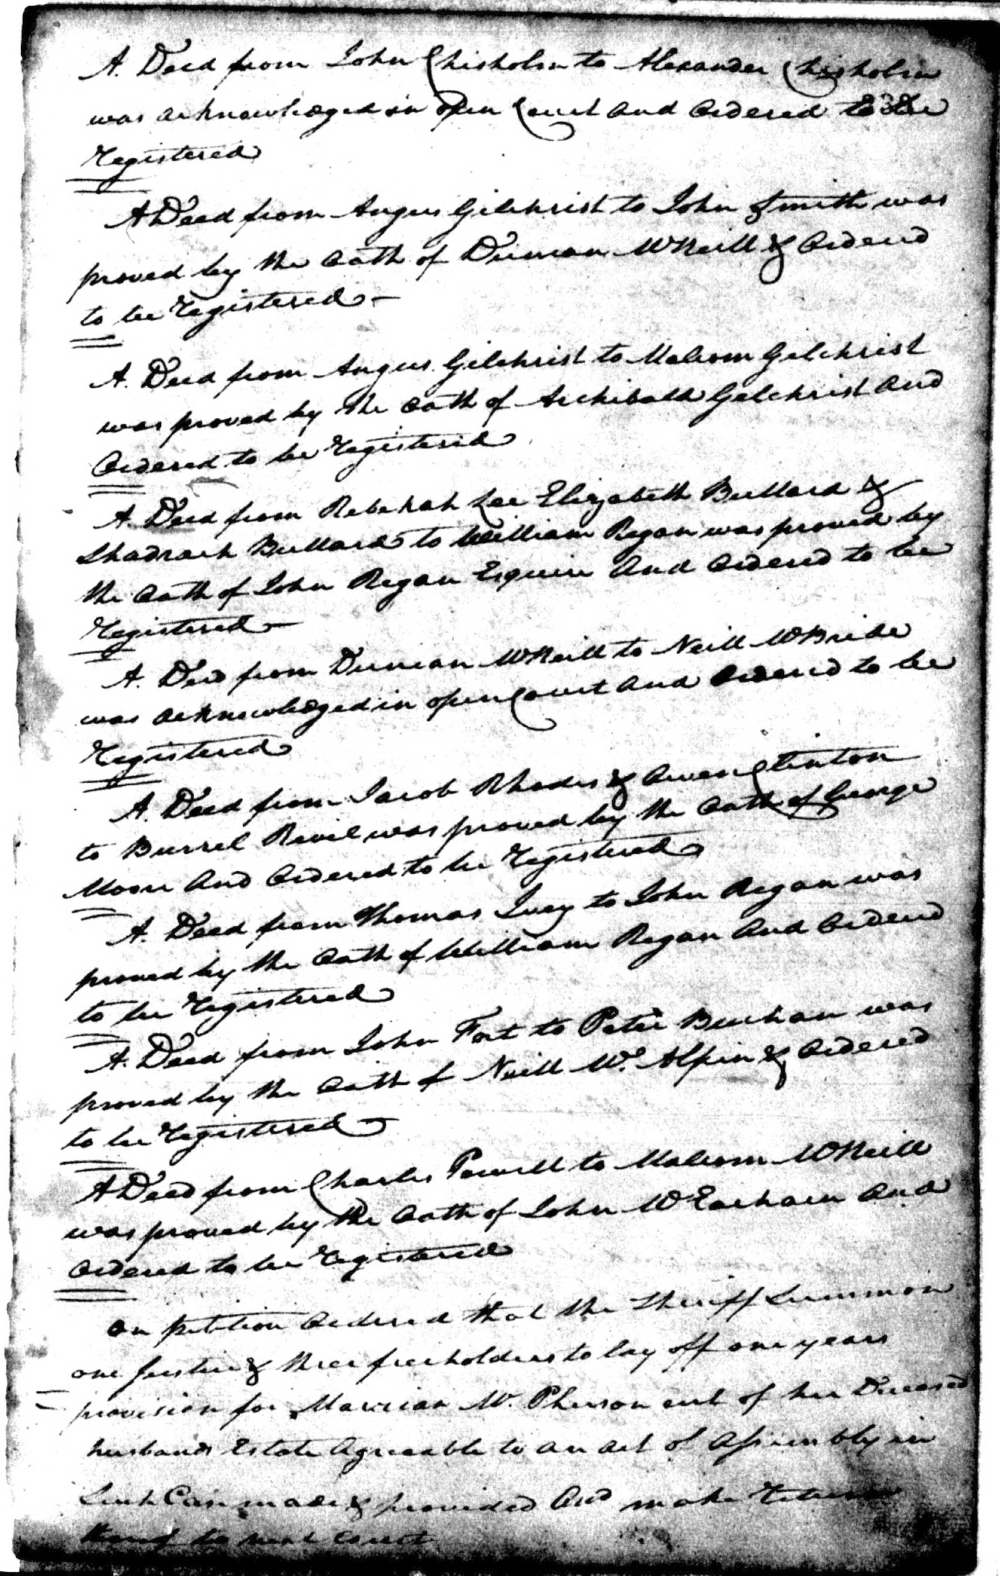 A Deed from John Chisholm to Alexander Chisholm
was acknowledged in open Court and Ordered to be
Registered
A Deed from Angus Gilchrist to John Smith was
proved by the Oath of Duncan McNeill & Ordered
to be Registered
A Deed from Angus Gilchrist to Malcom Gilchrist
was proved by the Oath of Archibald Gilchrist And
Ordered to be Registered
A Deed from Rebekah Lee Elizabeth Bullard &
Shadrach Bullard to William Regan was proved by
the Oath of John Regan Esquire And Ordered to be
Registered
A Deed from Duncan McNeill to Neill McBride
was acknowledged in open Court And Ordered to be
Registered
A Deed from Jacob Rhodes & Owen Clinton
to Burrel Revil was proved by the Oath of George
Moore And Ordered to be Registered
A Deed from Thomas Ivey to John Regan was
proved by the Oath of William Regan And Ordered
to be Registered
A Deed from John Fort to Peter Buchan was
proved by the Oath of Neill Mc. Alpin & Ordered
to be Registered
A Deed from Charles Powell to Malcom McNeill
was proved by the Oath of John McEachern And
Ordered to be Registered
On petition Ordered that the Sheriff Summon
one Justice & three freeholders to lay off one years
provision for Marrian Mc. Pherson out of her Deceased
husbands Estate Agreeable to an act of Assembly in
Such Case made & provided And make Return
thereof to next Court